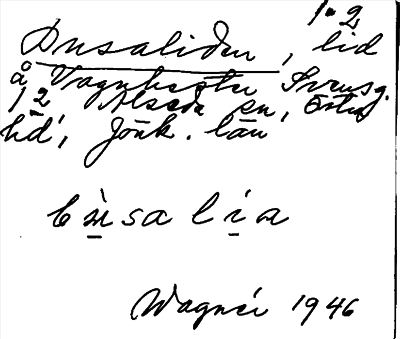 1-2
Busaliden, lid
å Vagnhester Svensg.
1 2 Alseda sn, Östra
hd, Jönk. län
bùsa lía
Wagnér 1946